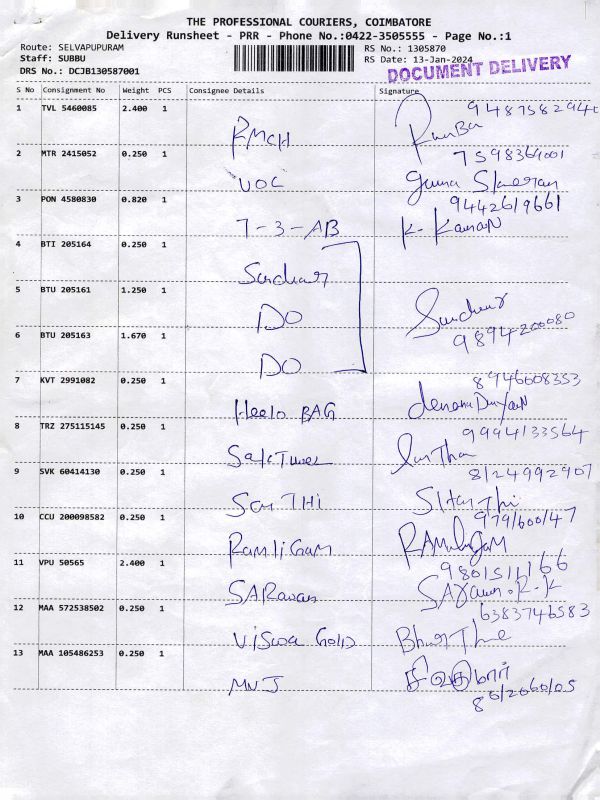 THE PROFESSIONAL COURIERS, COIMBATORE
Delivery Runsheet - PRR - Phone No.:0422-3505555 - Page No.:1
Route: SELVAPUPURAM
RS No.: 1305870
Staff: SUBBU
RS Date: 13-Jan-2024
DRS No.: DCJB130587001
DOCUMENT DELIVERY
S No Consignment No Weight PCS Consignee Details Signature
1 TVL 5460085 2.400 1 RMCH
2 MTR 2415052 0.250 1 VOC
3 PON 4580830 0.820 1 7-3-AB 9442619661
K. Kannan
4 BTI 205164 0.250 1 Sundar
5 BTU 205161 1.250 1 DO Sundar
9894200080
6 BTU 205163 1.670 1 DO
7 KVT 2991082 0.250 1 Heelo BAG 8946008353
8 TRZ 275115145 0.250 1 Sakthivel 9994133564
9 SVK 60414130 0.250 1 8124992907
10 CCU 200098582 0.250 1 RamliGam
11 VPU 50565 2.400 1 SARavan
12 MAA 572538502 0.250 1 Viswa Gold 6383746583
13 MAA 105486253 0.250 1 MNJ